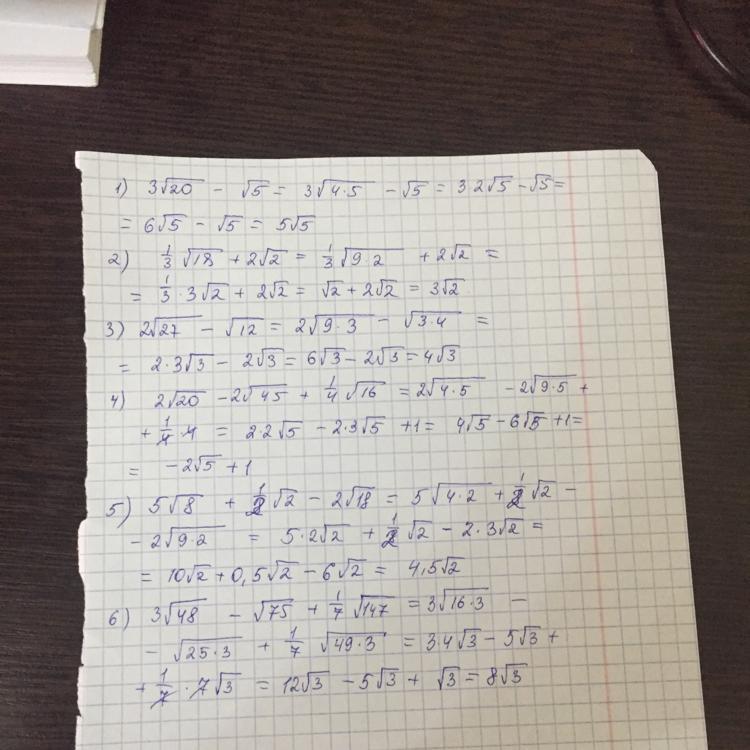 1) 3√20 - √5 = 3√4·5 - √5 = 3 2√5 - √5 =
= 6√5 - √5 = 5√5
2) 1/3 √18 + 2√2 = 1/3 √9·2 + 2√2 =
= 1/3 · 3√2 + 2√2 = √2 + 2√2 = 3√2
3) 2√27 - √12 = 2√9·3 - √3·4 =
= 2·3√3 - 2√3 = 6√3 - 2√3 = 4√3
4) 2√20 - 2√45 + 1/4 √16 = 2√4·5 - 2√9·5 +
+ 1/4 · 4 = 2·2√5 - 2·3√5 + 1 = 4√5 - 6√5 + 1 =
= -2√5 + 1
5) 5√8 + 1/2 √2 - 2√18 = 5√4·2 + 1/2 √2 -
- 2√9·2 = 5·2√2 + 1/2 √2 - 2·3√2 =
= 10√2 + 0,5√2 - 6√2 = 4,5√2
6) 3√48 - √75 + 1/7 √147 = 3√16·3 -
- √25·3 + 1/7 √49·3 = 3 4√3 - 5√3 +
+ 1/7 · 7√3 = 12√3 - 5√3 + √3 = 8√3